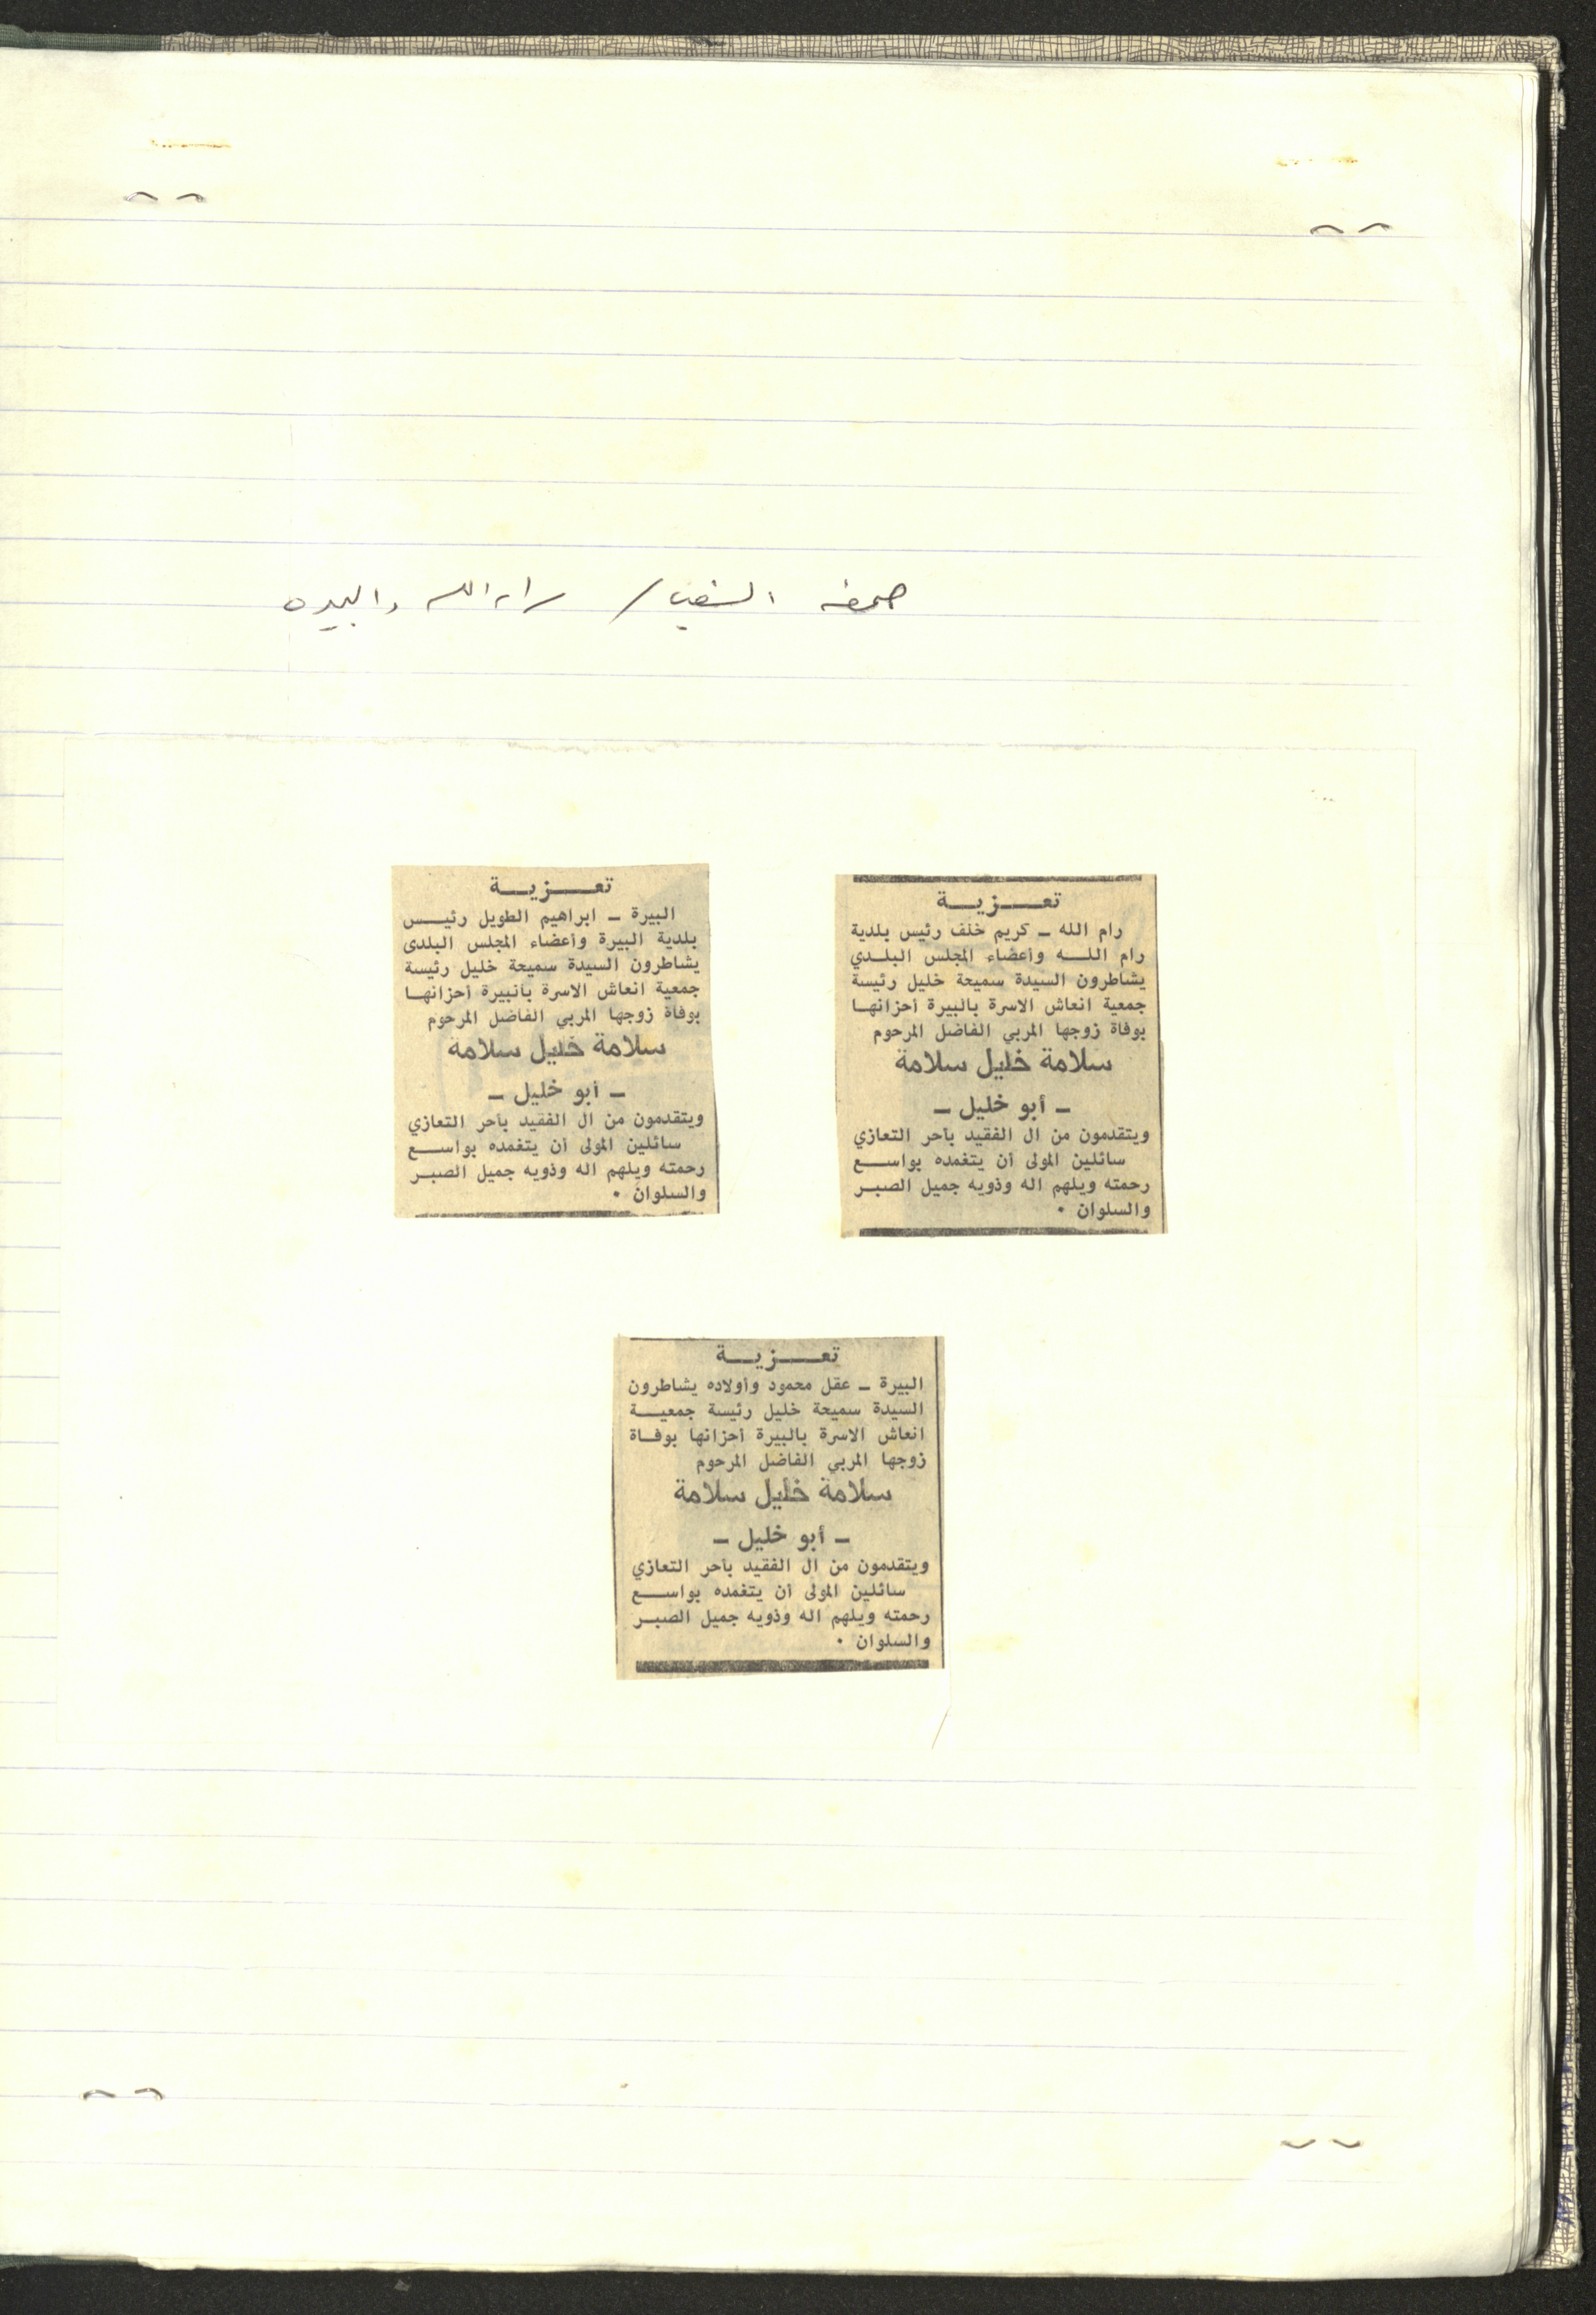 صحيفة الشعب / رام الله والبيره
تعـــزيـــة
رام الله ــ كريم خلف رئيس بلدية
رام اللـــه وأعضاء المجلس البلـدي
يشاطرون السيدة سميحة خليل رئيسة
جمعية انعاش الاسرة بالبيرة أحزانهـا
بوفاة زوجها المربي الفاضل المرحوم
سلامة خليل سلامة
ــ أبو خليل ــ
ويتقدمون من ال الفقيد بأحر التعازي
سائلين المولى أن يتغمده بواســـع
رحمته ويلهم اله وذويه جميل الصبـر
والسلوان ٠
تعـــزيـــة
البيرة ــ ابراهيم الطويل رئيـــس
بلدية البيرة وأعضاء المجلس البلدى
يشاطرون السيدة سميحة خليل رئيسة
جمعية انعاش الاسرة بالبيرة أحزانهـا
بوفاة زوجها المربي الفاضل المرحوم
سلامة خليل سلامة
ــ أبو خليل ــ
ويتقدمون من ال الفقيد بأحر التعازي
سائلين المولى أن يتغمده بواســـع
رحمته ويلهم اله وذويه جميل الصبـر
والسلوان ٠
تعـــزيـــة
البيرة ــ عقل محمود وأولاده يشاطرون
السيدة سميحة خليل رئيسة جمعيـــة
انعاش الاسرة بالبيرة أحزانها بوفـاة
زوجها المربي الفاضل المرحوم
سلامة خليل سلامة
ــ أبو خليل ــ
ويتقدمون من ال الفقيد بأحر التعازي
سائلين المولى أن يتغمده بواســـع
رحمته ويلهم اله وذويه جميل الصبـر
والسلوان ٠